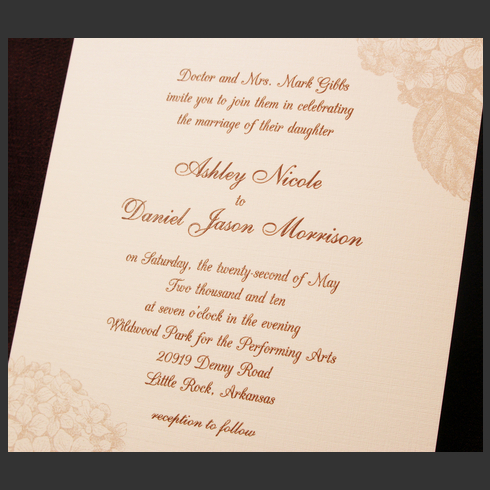 Doctor and Mrs. Mark Gibbs
invite you to join them in celebrating
the marriage of their daughter
Ashley Nicole
to
Daniel Jason Morrison
on Saturday, the twenty-second of May
Two thousand and ten
at seven o'clock in the evening
Wildwood Park for the Performing Arts
20919 Denny Road
Little Rock, Arkansas
reception to follow